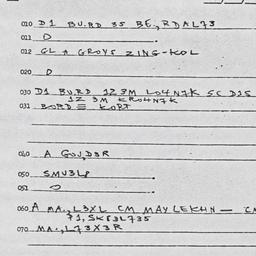 010 D1 BU.RD 35 BE, RDAL73
011 D
012 GL A GROYS ZING-KOL
020 D
030 D1 BU.RD 1Z 3M LO4N7K SC D15
1Z 3M KRO4N7K
031 BORD = KORT
040 A GOU,D3R
050 SMU3L8
051
060 A MA.,L3XL CM MAY LEKHN —
71, SK83L735
070 MA.,L73X3R